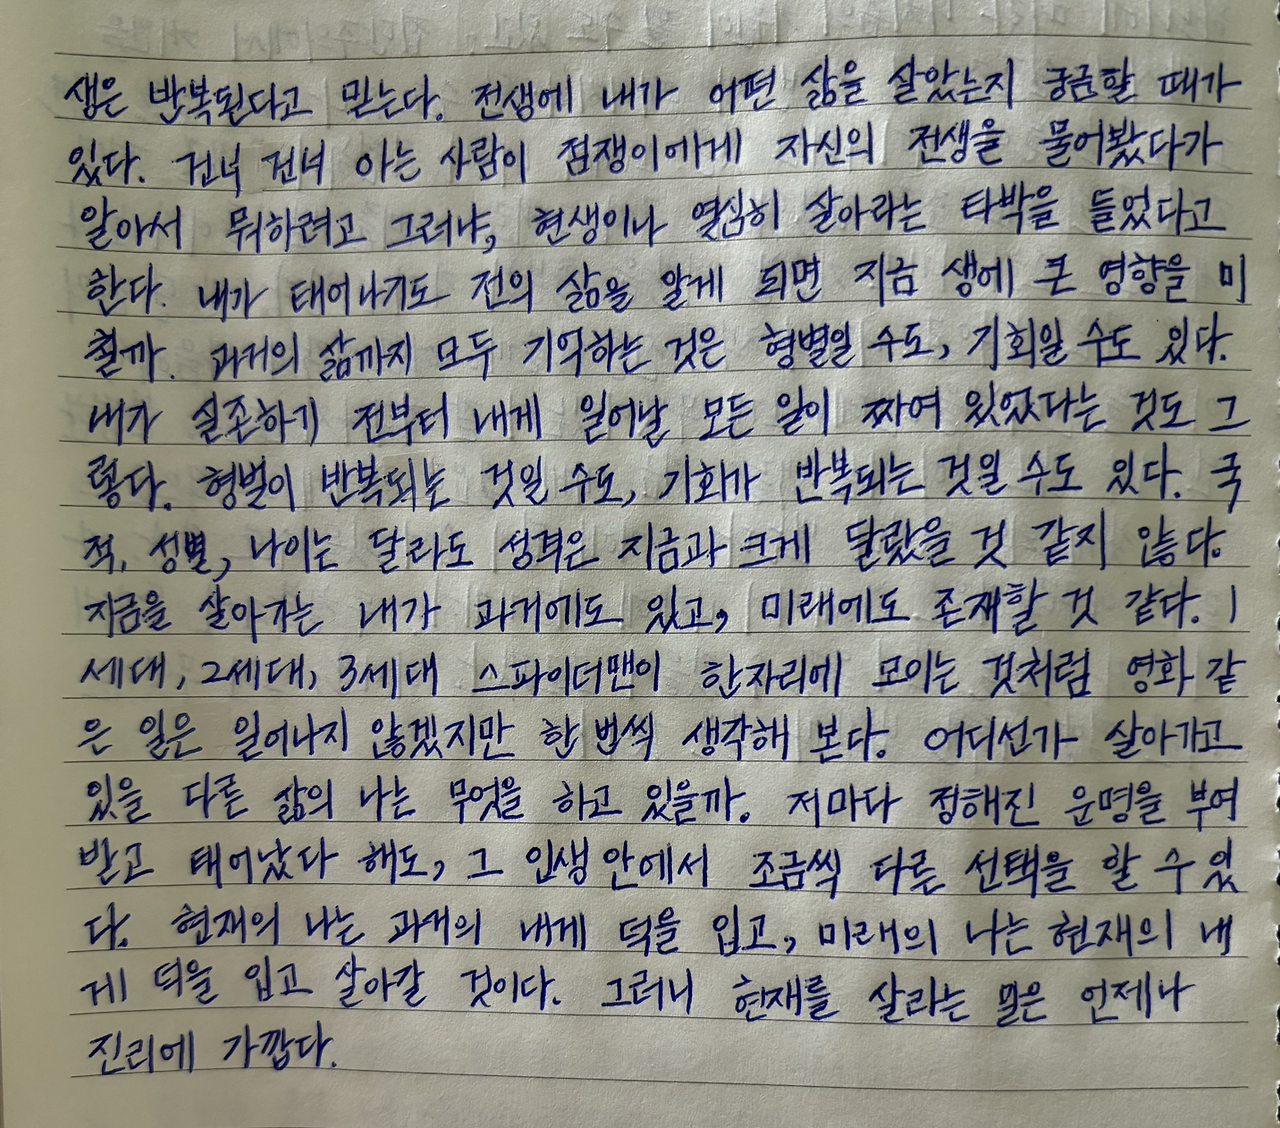 생은 반복된다고 믿는다. 전생에 내가 어떤 삶을 살았는지 궁금할 때가
있다. 건너 건너 아는 사람이 점쟁이에게 자신의 전생을 물어봤다가
알아서 뭐하려고 그러냐, 현생이나 열심히 살아라는 타박을 들었다고
한다. 내가 태어나기도 전의 삶을 알게 되면 지금 생에 큰 영향을 미
칠까. 과거의 삶까지 모두 기억하는 것은 형벌일 수도, 기회일 수도 있다.
내가 실존하기 전부터 내게 일어날 모든 일이 짜여 있었다는 것도 그
렇다. 형벌이 반복되는 것일 수도, 기회가 반복되는 것일 수도 있다. 국
적, 성별, 나이는 달라도 성격은 지금과 크게 달랐을 것 같지 않다.
지금을 살아가는 내가 과거에도 있고, 미래에도 존재할 것 같다. 1
세대, 2세대, 3세대 스파이더맨이 한자리에 모이는 것처럼 영화 같
은 일은 일어나지 않겠지만 한 번씩 생각해 본다. 어디선가 살아가고
있을 다른 삶의 나는 무엇을 하고 있을까. 저마다 정해진 운명을 부여
받고 태어났다 해도, 그 인생 안에서 조금씩 다른 선택을 할 수 있
다. 현재의 나는 과거의 내게 덕을 입고, 미래의 나는 현재의 내
게 덕을 입고 살아갈 것이다. 그러니 현재를 살라는 말은 언제나
진리에 가깝다.